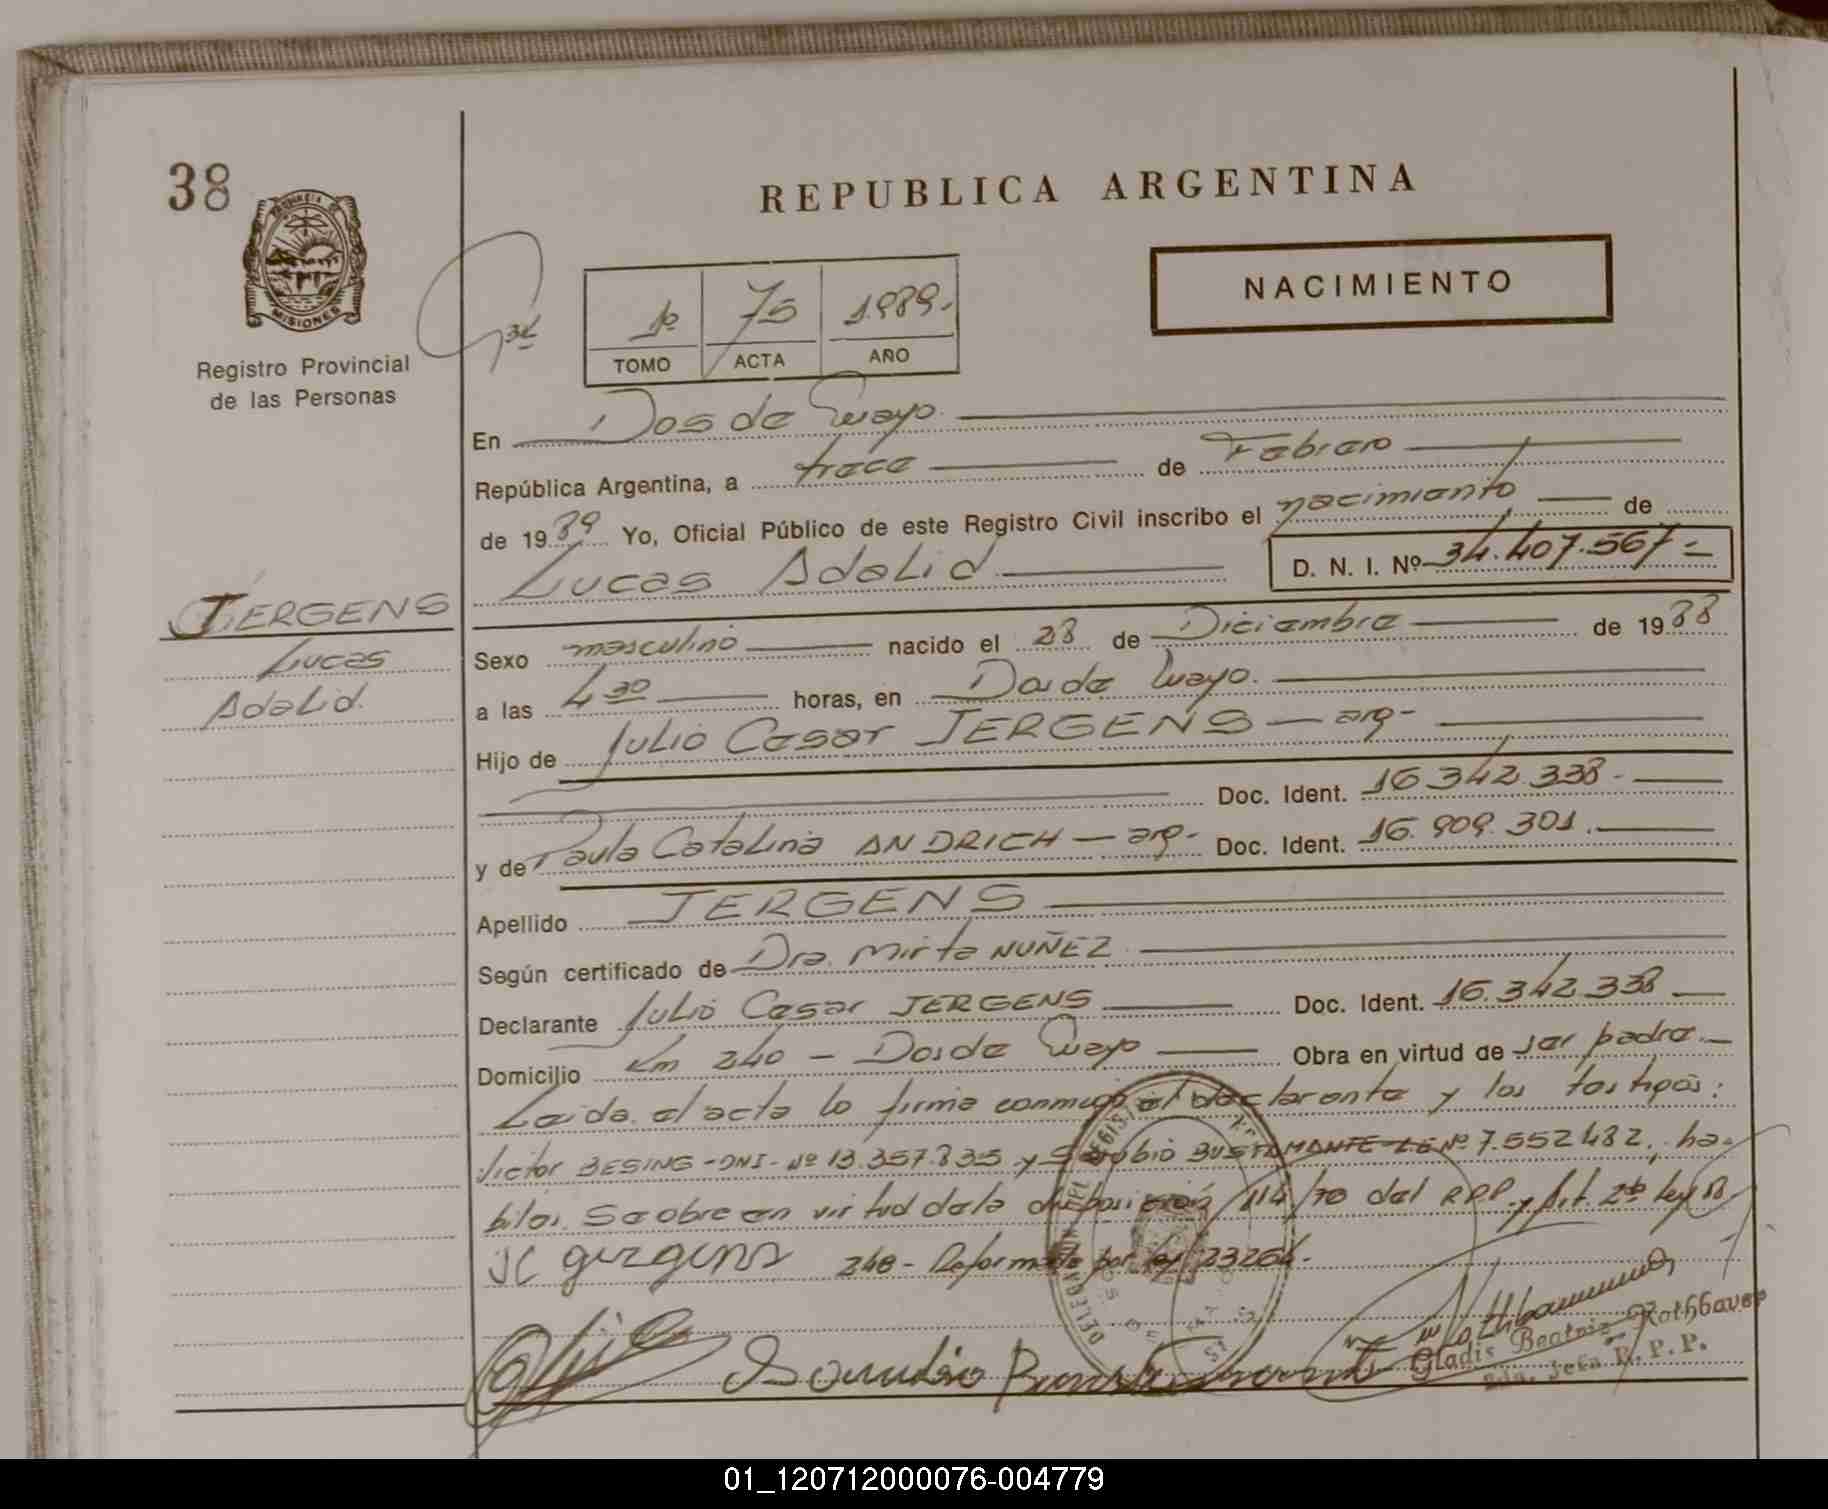 38
REPUBLICA ARGENTINA
NACIMIENTO
MISIONES
Registro Provincial
de las Personas
1º 75 1.989.-
TOMO ACTA AÑO
En Dos de Mayo.
República Argentina, a trece de Febrero
de 1989 Yo, Oficial Público de este Registro Civil inscribo el nacimiento de
Lucas Adalid D. N. I. Nº 34.407.567-
JERGENS
Lucas
Adalid.
Sexo masculino nacido el 28 de Diciembre de 1988
a las 4 30 horas, en Dos de Mayo.
Hijo de Julio Cesar JERGENS - arg-
Doc. Ident. 16.342.338.-
y de Paula Catalina ANDRICH - arg- Doc. Ident. 16.909.301.
Apellido JERGENS
Según certificado de Dra. Mirta NUÑEZ
Declarante Julio Cesar JERGENS Doc. Ident. 16.342.338
Domicilio Km 240 - Dos de Mayo Obra en virtud de ser padre.-
Leida el acta lo firma conmigo el declarante y los testigos:
Victor BESING-DNI-Nº 13.357.835 y BUSTAMANTE-LE Nº 7.552482, ha-
biles. Se obre en virtud de la disposición 114/70 del RPP. y Art. 2º ley 18
248 - Reformada por ley 23264.-
Gladis Beatriz Rothbauer
Jefa R. P. P.
01_120712000076-004779